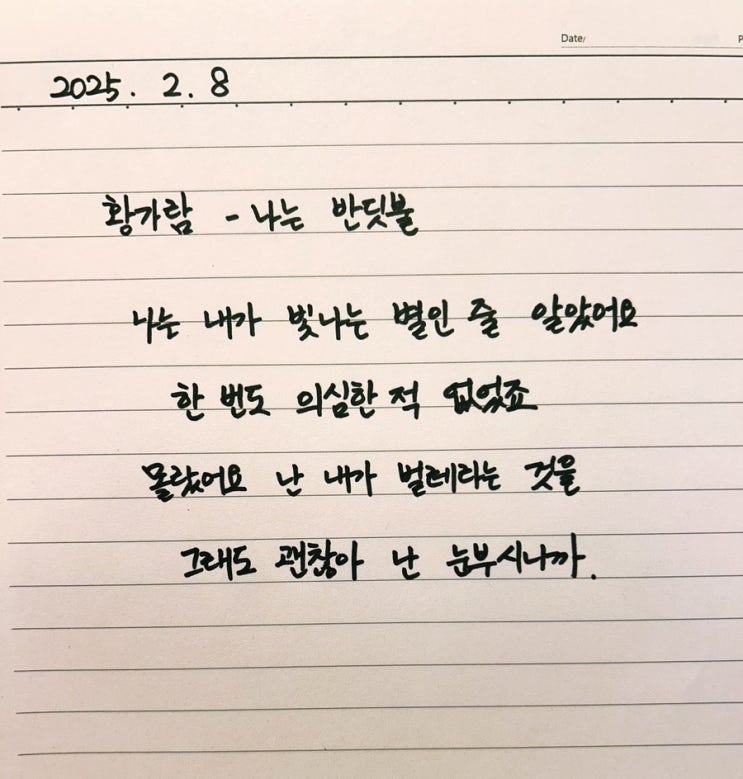 Date/
2025. 2. 8
황가람 - 나는 반딧불
나는 내가 빛나는 별인 줄 알았어요
한 번도 의심한 적 없었죠
몰랐어요 난 내가 벌레라는 것을
그래도 괜찮아 난 눈부시니까.